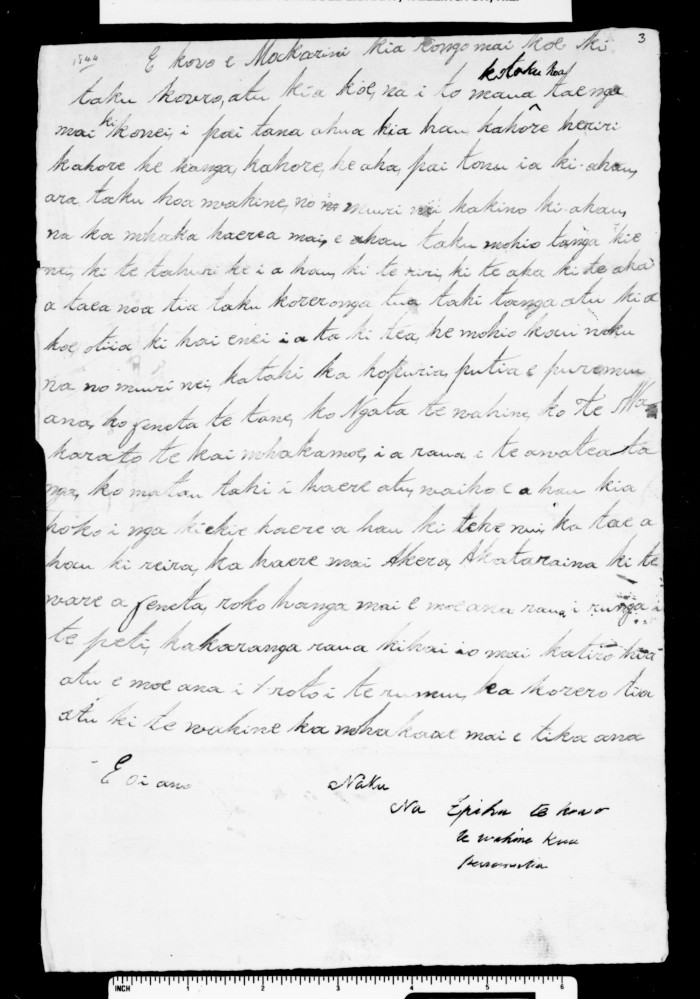 3
1844
E koro e Mackarini kia rongo mai koe ki
ko toku hoa
taku korero, atu kia koe, na i to maua taenga
mai ki konei, i pai tana ahua kia hau, kahore he riri
kahore he kanga, kahore, he aha, pai tonu ia ki-ahau,
ara, taku hoa wahine, no muri nei kakino ki-ahau,
na ka whaka haerea mai, e ahau taku mohio tanga kie
nei, ki te tahuri ke i a hau, ki te riri, ki te aha ki te aha
a taea noa tia taku korero nga tua tahi tanga atu ki a
koe, otiia ki hai enei i a ta ki tea, he mohio kau noku
na no muri nei, katahi ka hopukia, putia e puremu
ana, ko Jeneta te tane, ko Ngata te wahine, ko Te
karato te kai whakamoe, i a raua i te awatea ta
nga, ko matau tahi i haere atu, waiho e a hau kia
hoko i nga kiekie haere a hau ki tehe nui, ka tae a
hau ki reira, ka haere mai Akera, Akataraina ki te
ware a Jeneta, roko hanga mai e moe ana raua, i runga i
te peti, kakaranga raua kihai i o mai katiro hia
atu e moe ana i roto i te rumu, ka korero tia
atu ki te wahine ka whakaae mai e tika ana
E oi ano
Naku
Na Epiha te koro
te wahine kua